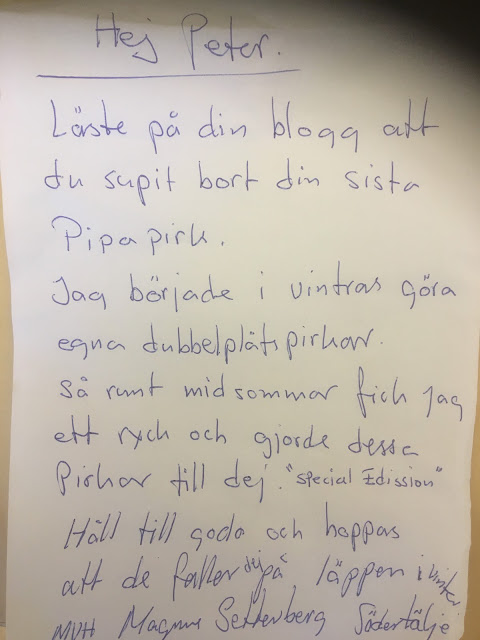 Hej Peter.
Läste på din blogg att
du supit bort din sista
Pipapirk.
Jag började i vintras göra
egna dubbelplåtspirkar.
Så runt midsommar fick jag
ett ryck och gjorde dessa
Pirkar till dej. "Special Edission"
Håll till godo och hoppas
att de faller dej på läppen i vinter
MVH Magnus Setterberg Södertälje